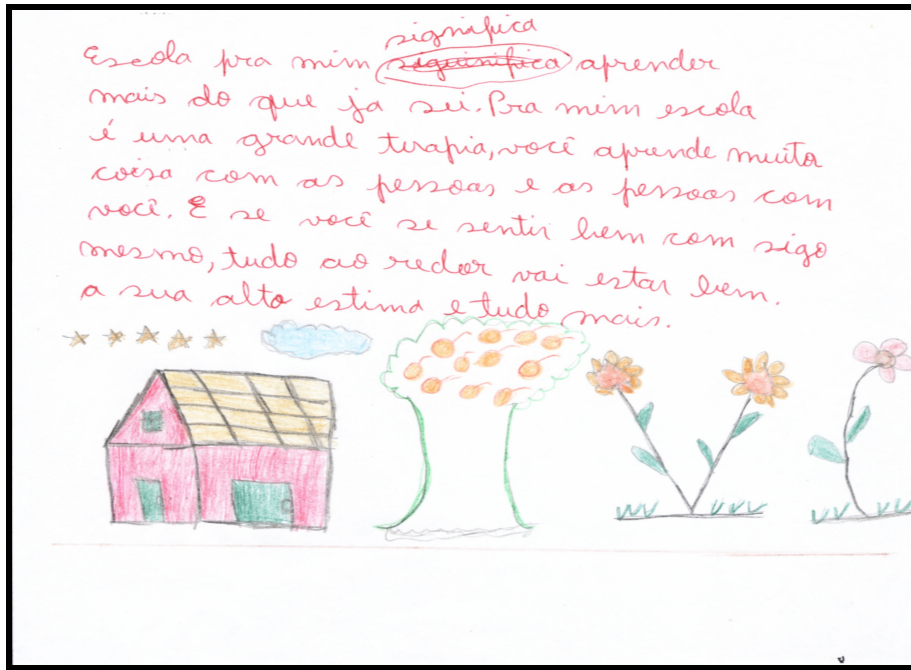 significa
Escola pra mim siguinifica aprender
mais do que ja sei. Pra mim escola
é uma grande terapia, você aprende muita
coisa com as pessoas e as pessoas com
você. E se você se sentir bem com sigo
mesmo, tudo ao redor vai estar bem.
a sua alto estima e tudo mais.